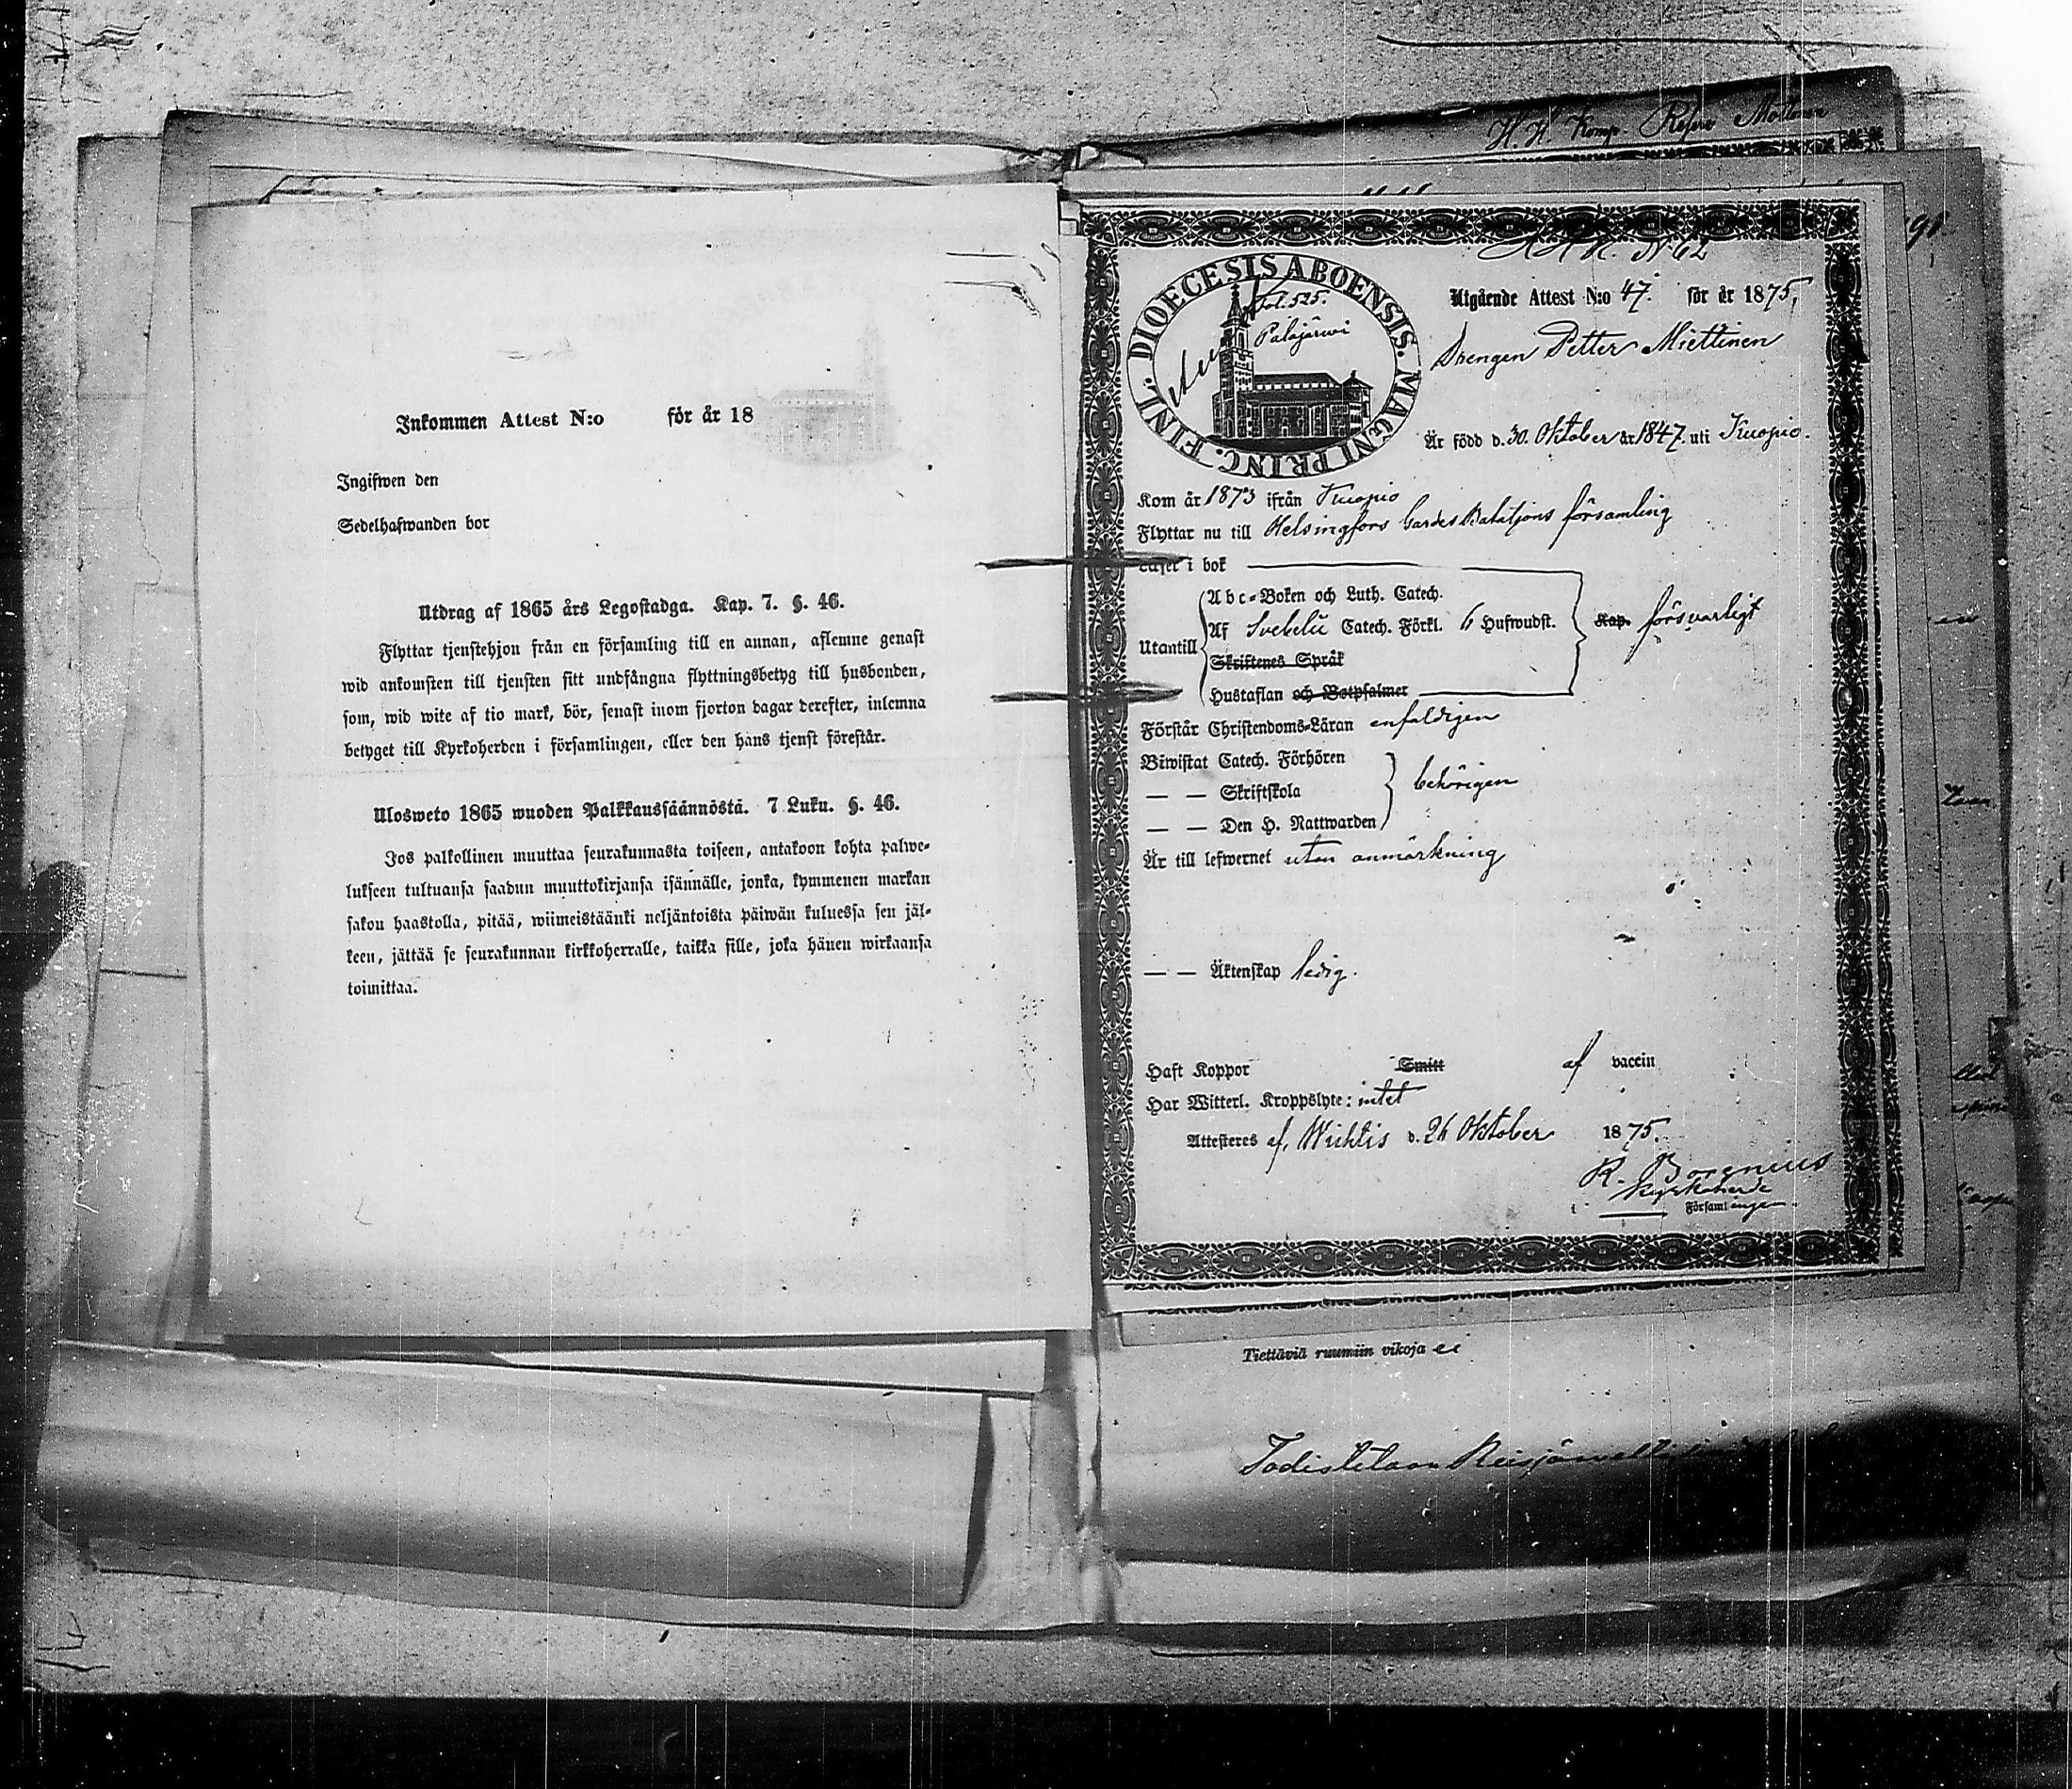 Inkommen Attest N:o för år 18
Ingifwen den
Sedelhafwanden bor
Utdrag af 1865 års Legostadga. Kap. 7. §. 46.
Flyttar tjenstehjon från en församling till en annan, aflemne genast
wid ankomsten till tjensten sitt undfångna flyttningsbetyg till husbonden,
som, wid wite af tio mark, bör, senast inom fjorton dagar derefter, inlemna
betyget till Kyrkoherden i församlingen, eller den hans tjenst förestår.
Ulosweto 1865 wuoden Palkkaussäännöstä. 7 Luku. §. 46.
Jos palkollinen muuttaa seurakunnasta toiseen, antakoon kohta palwe-
lukseen tultuansa saadun muuttokirjansa isännälle, jonka, kymmenen markan
sakon haastolla, pitää, wiimeistäänki neljäntoista päiwän kuluessa sen jäl-
keen, jättää se seurakunnan kirkkoherralle, taikka sille, joka hänen wirkaansa
toimittaa.
H. H. Komp.
N:62
DIOECESIS ABOENSIS. MAGNI PRINC. FINL.
Fol. 525.
Palajärwi
Utgående Attest N:o 47. för år 1875,
Drengen Petter Miettinen
Är född d. 30. Oktober år 1847. uti Kuopio.
Kom år 1873 ifrån Kuopio
Flyttar nu till Helsingfors Gardes Bataljons församling
Läser i bok
Utantill
Abc-Boken och Luth. Catech.
Af Svebelii Catech. Förkl. 6 Hufwudst.
Skriftenes Språk
Hustaflan och Botpsalmer
Kap. försvarligt
Förstår Christendoms-Läran enfaldigen
Biwistat Catech. Förhören
— — Skriftskola
— — Den H. Nattwarden
behörigen
Är till lefwernet utan anmärkning
— — Äktenskap ledig.
Haft Koppor Smitt af vaccin
Har Witterl. Kroppslyte: intet
Attesteres af, Wichtis d. 26 Oktober 1875.
R. Borgenius
Kyrkoherde
i Församlingen
Tiettäviä ruumiin vikoja ei
Todistetaan